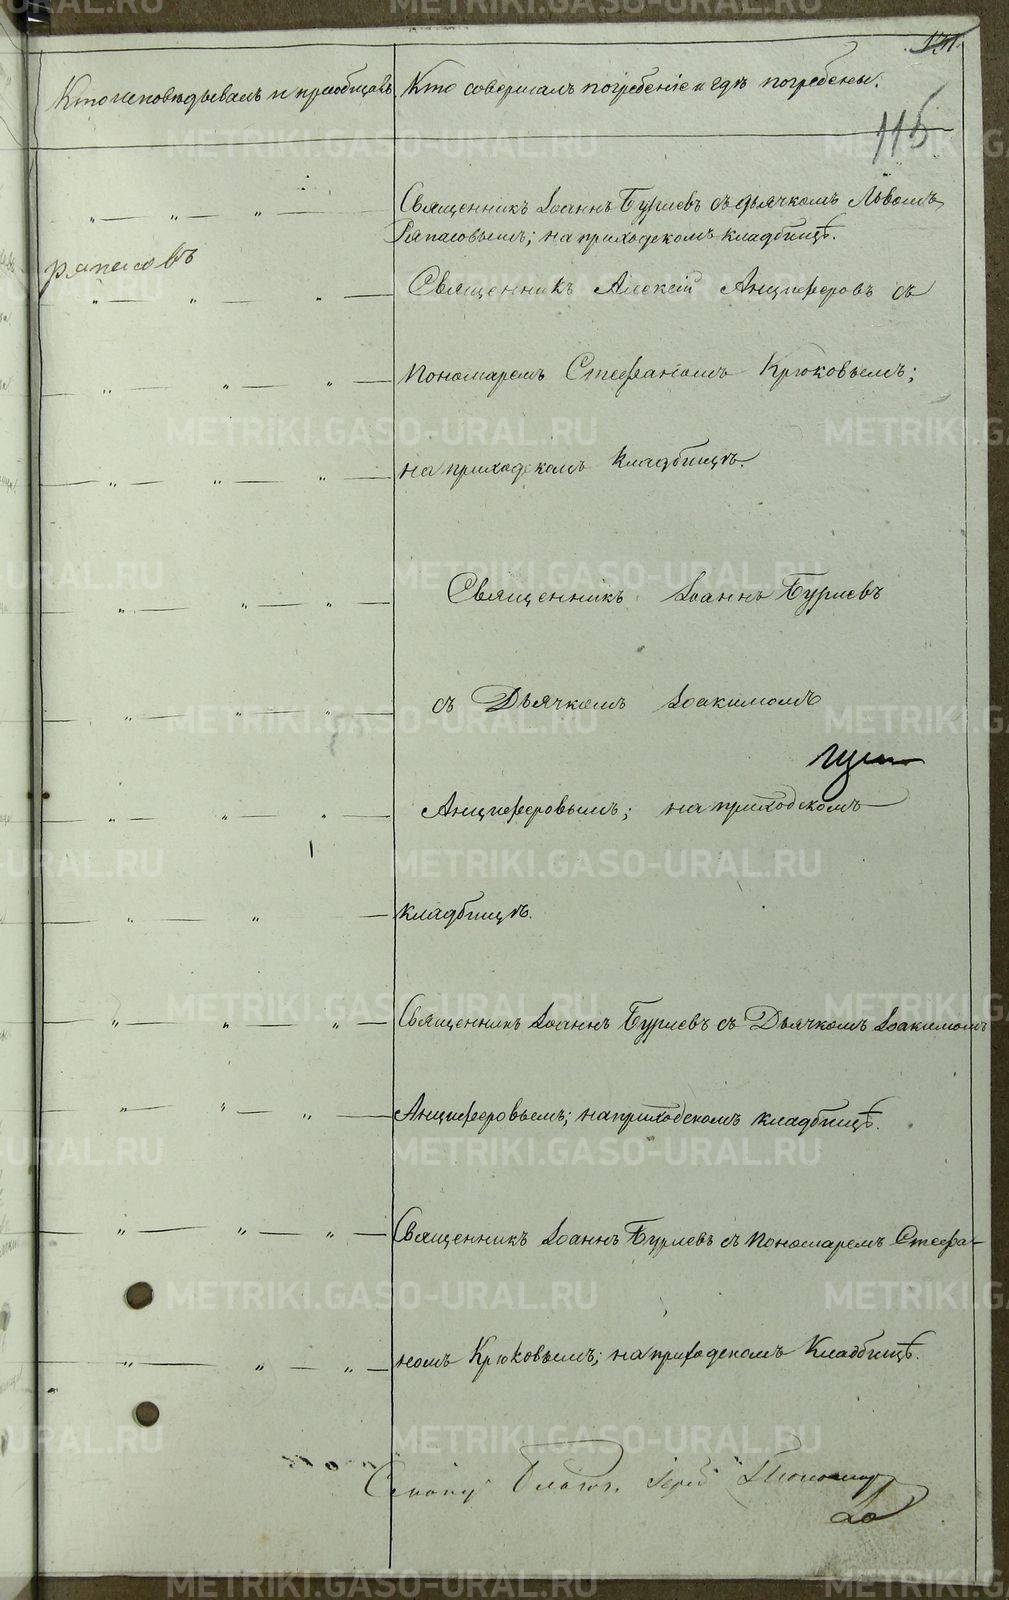 121.
Кто исповѣдывалъ и пріобщалъ. Кто совершалъ погребеніе и гдѣ погребены.
115
Священникъ Іоаннъ Бурцевъ съ дьячкомъ Львомъ
Ряпасовымъ; на приходскомъ кладбищѣ.
ряпасовъ
Священникъ Алексій Анциферовъ съ
пономаремъ Стефаномъ Крюковымъ;
на приходскомъ кладбищѣ.
Священникъ Іоаннъ Бурцевъ
съ Дьячкомъ Іоакимомъ
Анциферовымъ; на приходскомъ
кладбищѣ.
Священникъ Іоаннъ Бурцевъ съ Дьячкомъ Іоакимомъ
Анциферовымъ; на приходскомъ кладбищѣ.
Священникъ Іоаннъ Бурцевъ съ пономаремъ Стефа-
номъ Крюковымъ; на приходскомъ Кладбищѣ.
METRIKI.GASO-URAL.RU